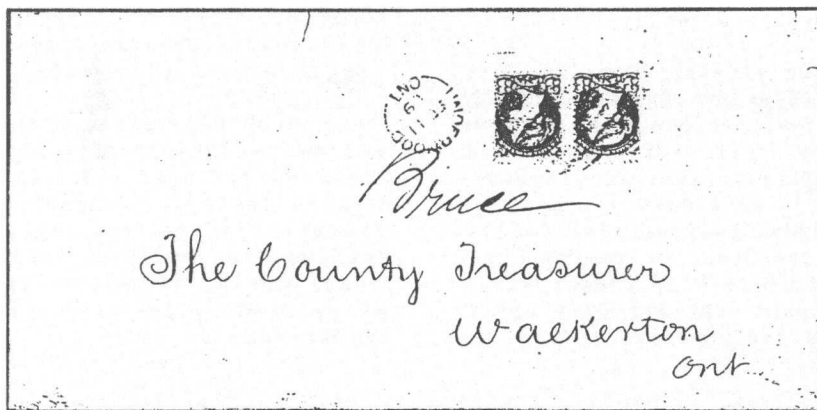 ONT
Bruce
The County Treasurer
Walkerton
Ont.